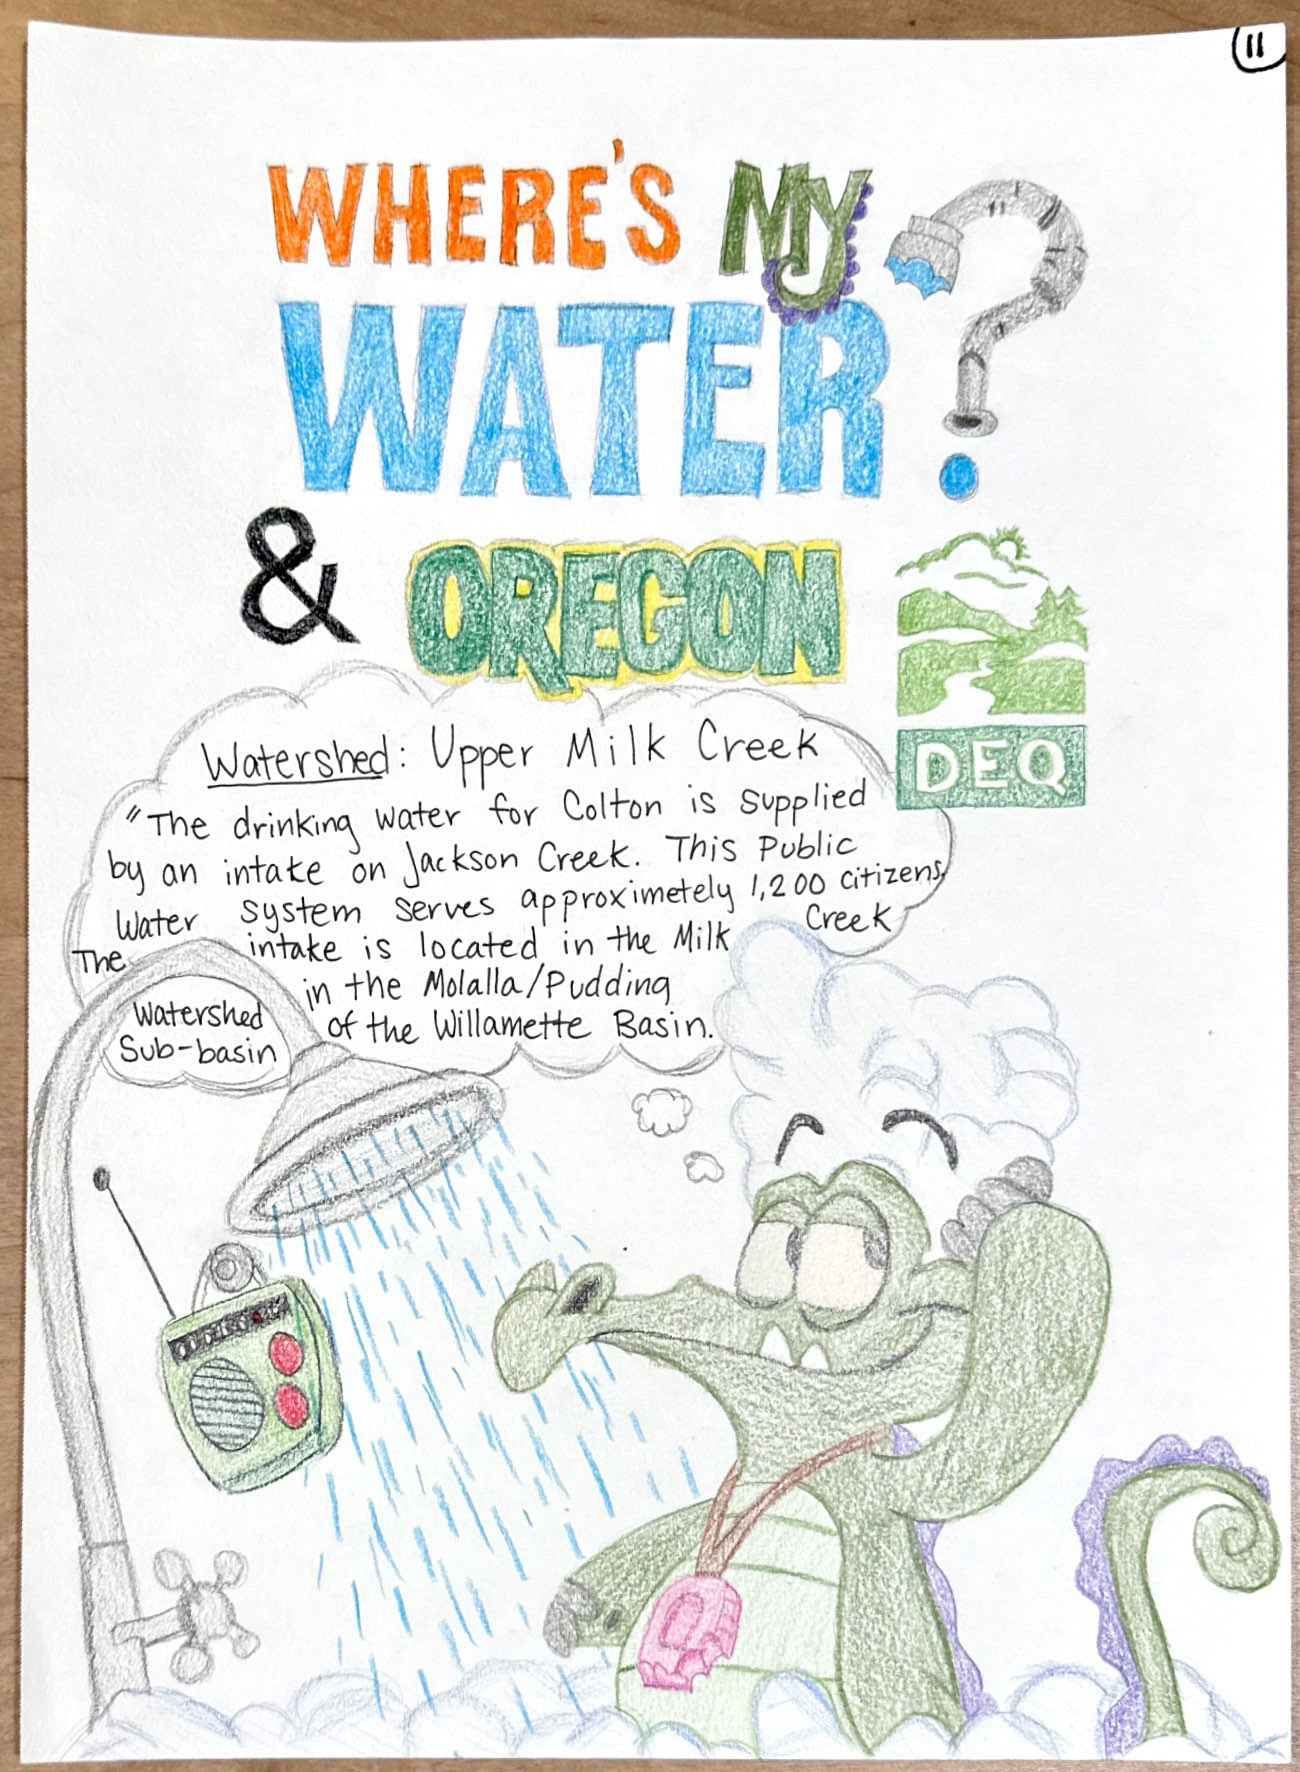 11
WHERE'S MY
WATER?
& OREGON
DEQ
Watershed: Upper Milk Creek
"The drinking water for Colton is supplied
by an intake on Jackson Creek. This Public
Water system serves approximetely 1,200 citizens.
The intake is located in the Milk Creek
Watershed in the Molalla/Pudding
Sub-basin of the Willamette Basin.